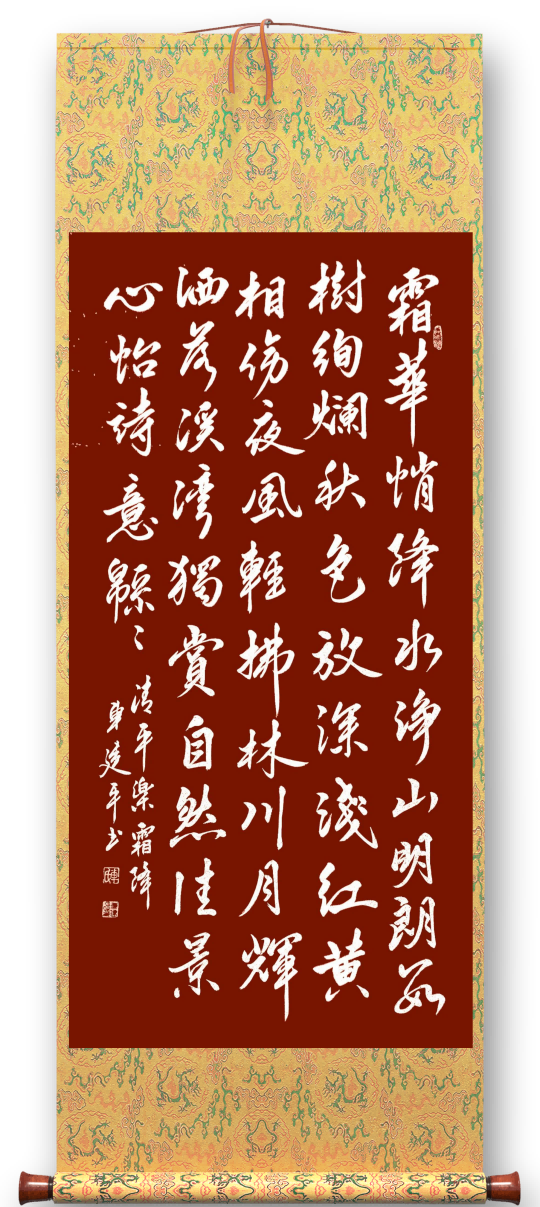 霜華悄降水淨山明朗數
樹絢爛秋色放深淺紅黄
相傍夜風輕拂林川月輝
洒落溪灣獨賞自然佳景
心怡詩意緜〻
清平樂霜降
平书